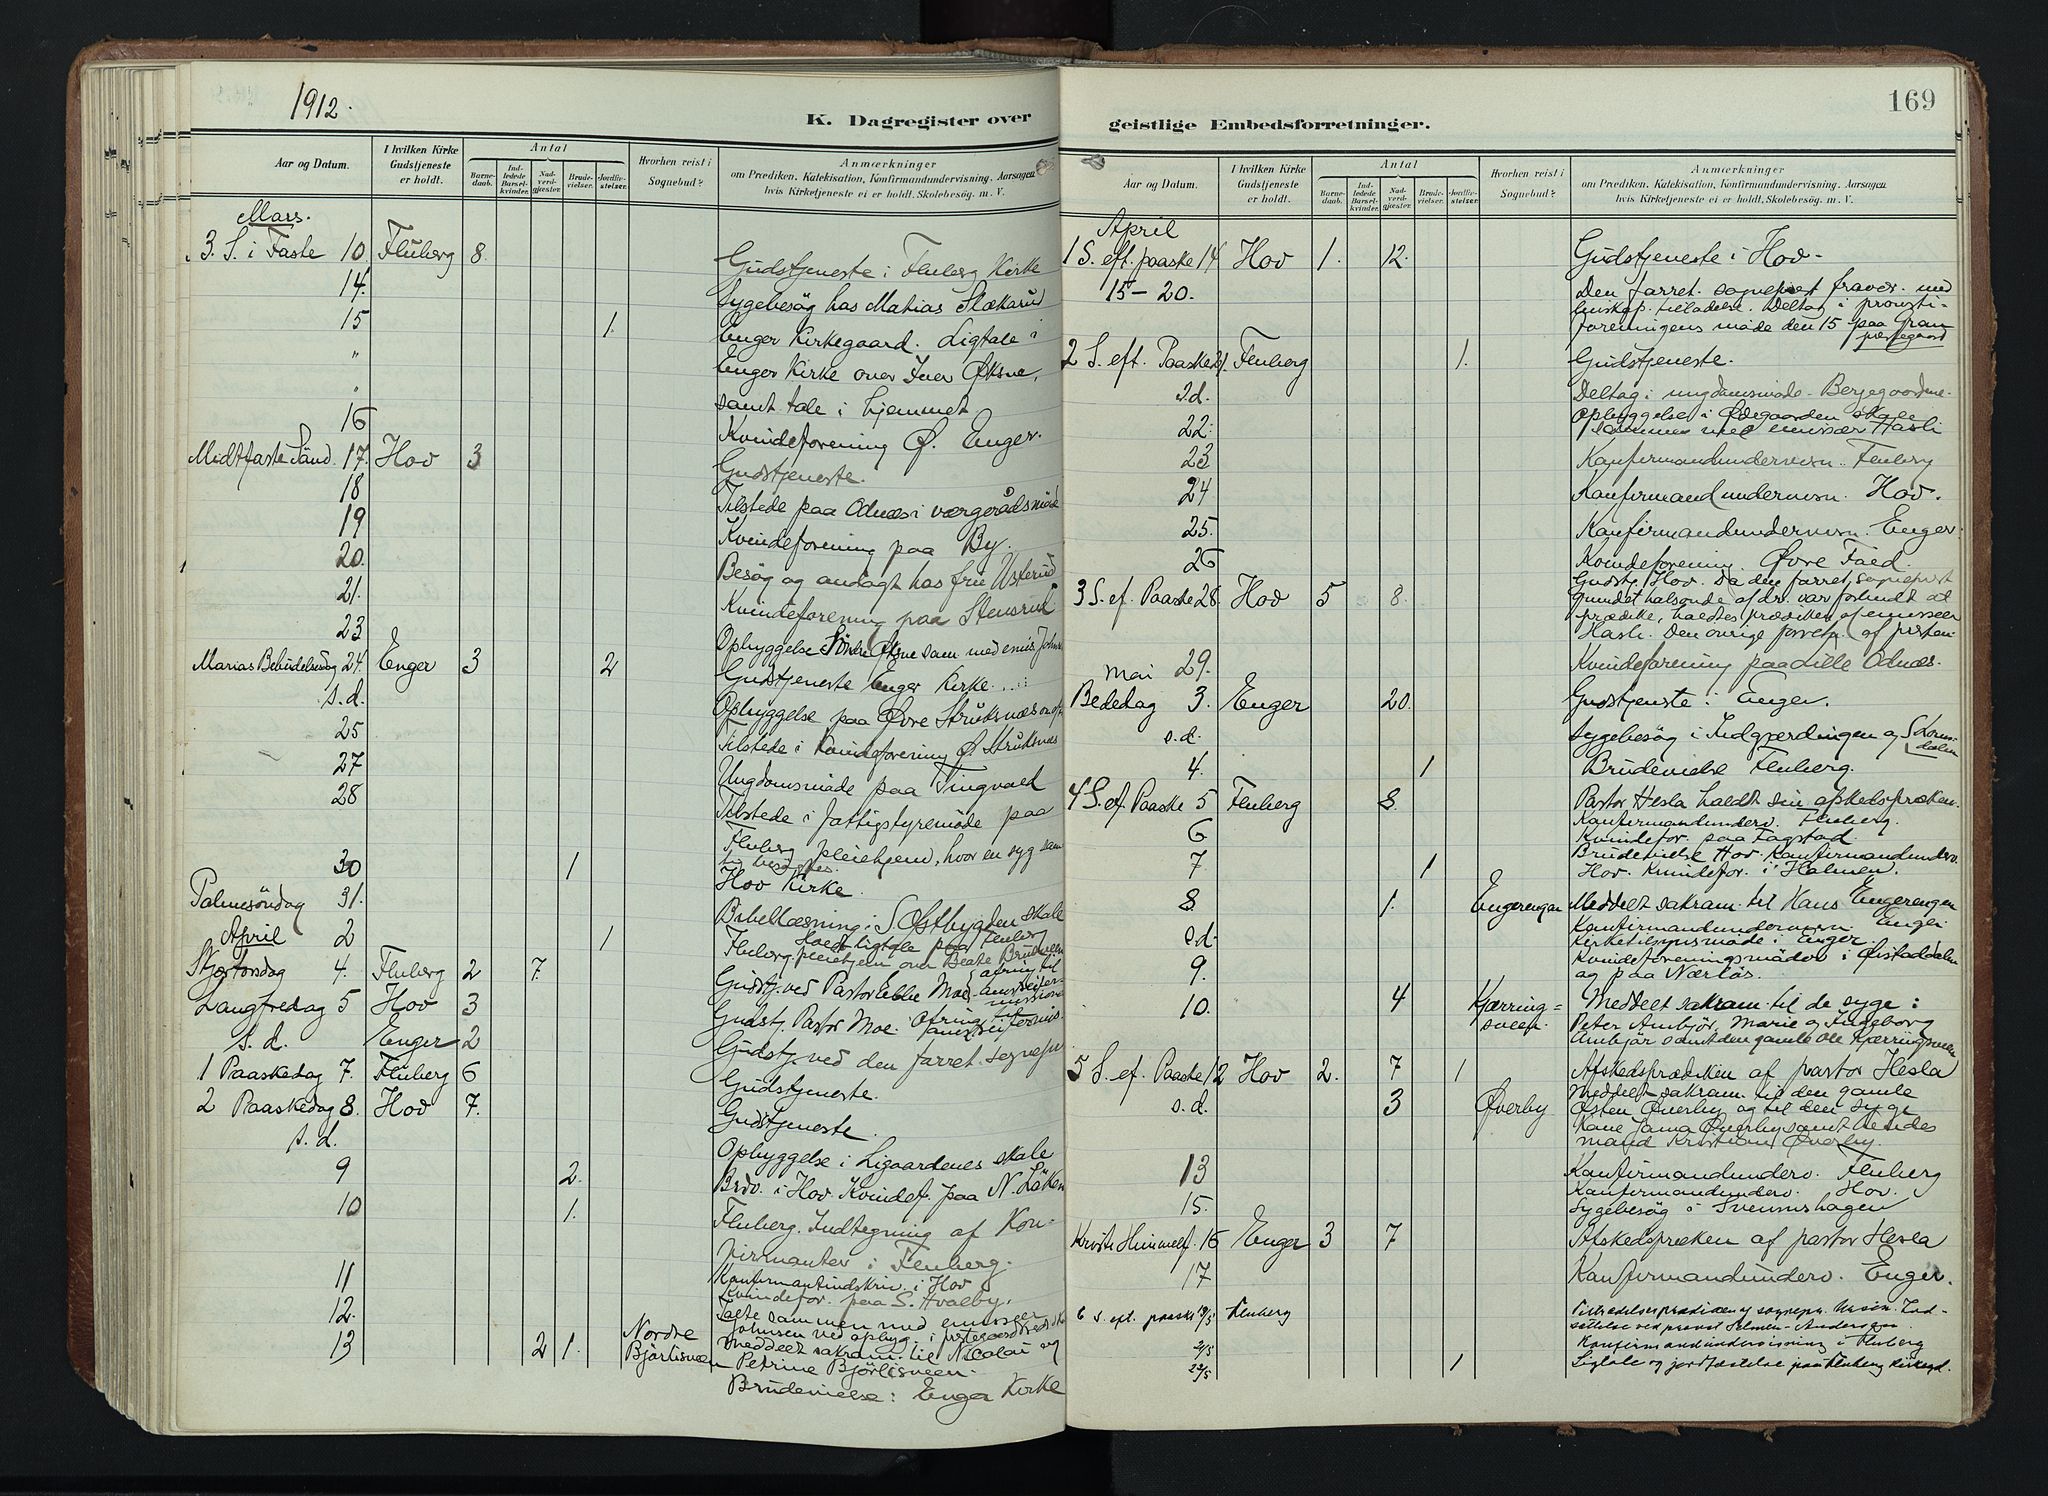 1912.
K. Dagregister over
Aar og Datum.
I hvilken Kirke Gudstjeneste er holdt.
Antal
Barne-daab.
Ind-ledede Barsel-kvinder.
Nad-verd-gjæster.
Brude-vielser.
Jordfæ-stelser.
Hvorhen reist i Sognebud?
Anmærkninger
om Prædiken, Katekisation, Konfirmandundervisning, Aarsagen
hvis Kirketjeneste ei er holdt, Skolebesøg. m. V.
Mars.
3. S. i Faste 10. Fluberg 8. Gudstjeneste i Fluberg Kirke
14. Sygebesög hos Mathias
15 1. Enger Kirkegaard. Ligtale i
" Enger Kirke over Iver Øksne,
" samt tale i hjemmet
16 Kvindeforening Ø. Enger.
Midtfaste Sünd. 17. Hov 3 Gudstjeneste.
18 Tilstede paa Odnæs i værgerådsmöde
19 Kvindeforening paa By.
20. Besög og andagt hos fru
21. Kvindeforening paa Stensrud
23 Opbyggelse Söndre Øksne sam. med emis. Johns
Marias Bebudelsesdag 24. Enger 3 2 Gudstjeneste Enger Kirke
s.d. Opbyggelse paa Øvre Struksnæs
25 Tilstede i Kvindeforening Ø. Struksnæs
27 Ungdomsmöde paa Tingvold
28 Tilstede i fattigstyremöde paa
Fluberg pleiehjem, hvor en syg sam
tig besögtes.
30 1 Hov Kirke.
Palmesöndag 31. Bibellæsning i S. Østbygden skole
April 2 1 Holdt ligtale paa Fluberg
Fluberg pleiehjem over Beate
Skjærtorsdag 4. Fluberg 2 7. Gudstj. ved Pastor Ebbe Moe - ofring til
Langfredag 5 Hov 3 Gudstj. Pastor Moe. Ofring til
s. d. Enger 2 Gudstj. ved den forret. sognepr
1 Paaskedag 7. Fluberg 6 Gudstjeneste.
2 Paaskedag 8. Hov 7. Gudstjeneste.
s. d. Opbyggelse i Ligaardenes skole
9 2. Brdv. i Hov Kvindef. paa N. Löken
10 1. Fluberg. Indtegning af Kon-
firmanter i Fluberg.
11 Konfirmantindskriv. i Hov
Kvindefor. paa S. Hvalby.
12. Talte sammen med emissær
Johnsen ved opbyg. i
13 2 1. Nordre Bjørlisveen Meddelt sakram. til Nicolai og
Petrine Bjørlisveen.
Brudevielse i Enger Kirke
169
geistlige Embedsforretninger.
Aar og Datum.
I hvilken Kirke Gudstjeneste er holdt.
Antal
Barne-daab.
Ind-ledede Barsel-kvinder.
Nad-verd-gjæster.
Brude-vielser.
Jordfæ-stelser.
Hvorhen reist i Sognebud?
Anmærkninger
om Prædiken, Katekisation, Konfirmandundervisning, Aarsagen
hvis Kirketjeneste ei er holdt, Skolebesøg. m. V.
April
1 S. eft. paaske 14 Hov 1. 12. Gudstjeneste i Hov.
15-20. Den forret. sogneprest fravær. med
biskop. tilladelse. Deltog i prousti-
foreningens möde den 15 paa Gran
prestegaard
2 S. eft. Paaske 21. Fluberg 1. Gudstjeneste.
s.d. Deltog i ungdomsmöde
22. Opbyggelse i Ødegaarden skole
sammen med emissær Hasli
23 Konfirmandundervisn. Fluberg
24 Konfirmandundervisn. Hov.
25. Konfirmandundervisn. Enger.
26 Kvindeforening. Øvre
3 S. ef. Paaske 28. Hov 5 8. Gudstj. Hov. Da den forret. sogneprest
grundet halsonde af dr. var forbudt at
prædike, holdtes prædiken af emissær
Hasli. Den övrige forretn. af presten
29. Kvindeforening paa Lille Odnæs.
Mai
Bededag 3. Enger 20. Gudstjeneste i Enger.
s.d. Sygebesög i Indgjerdingen og
4. 1 Brudevielse Fluberg.
4 S. ef. Paaske 5 Fluberg 8. Pastor Hesla holdt sin afskedspræken.
6 Konfirmandunderv. Fluberg.
Kvindefor. paa Fagstad.
7 1 Brudevielse Hov. Konfirmandunderv.
Hov. Kvindefor. i Holmen.
8. 1. Engerengen Meddelt sakram. til Hans Engerengen
s.d. Konfirmandundervisn. Enger
Kirketilsynsmöde i Enger.
9. Kvindeforeningsmöder i
og paa Nærlös.
10. 4 Kjærring-sveen. Meddelt sakram. til de syge:
Peter Ambjör, Marie og Ingeborg
Ambjör samt den gamle Ole Kjærringsveen
5 S. ef. Paaske 12 Hov 2. 7 1 Afskedsprædiken af pastor Hesla
s.d. 3 Øverby Meddelt sakram. til den gamle
Østen Øverby og til den syge
Kone Øverby samt hendes
mand Kristian Øverby.
13 Konfirmandunderv. Fluberg
15. Konfirmandunderv. Hov.
Sygebesög i Svenshagen
Kristi Himmelf. 16 Enger 3 7 Afskedspræken af pastor Hesla
17 Konfirmandunderv. Enger.
6 S. eft. paaske 19/5 Fluberg Tiltrædelsesprædiken af sognepr. Ind-
sættelse ved provst
21/5 Konfirmandundervisning i Fluberg
22/5 1 Ligtale og jordfæstelse paa Fluberg Kirkegd.